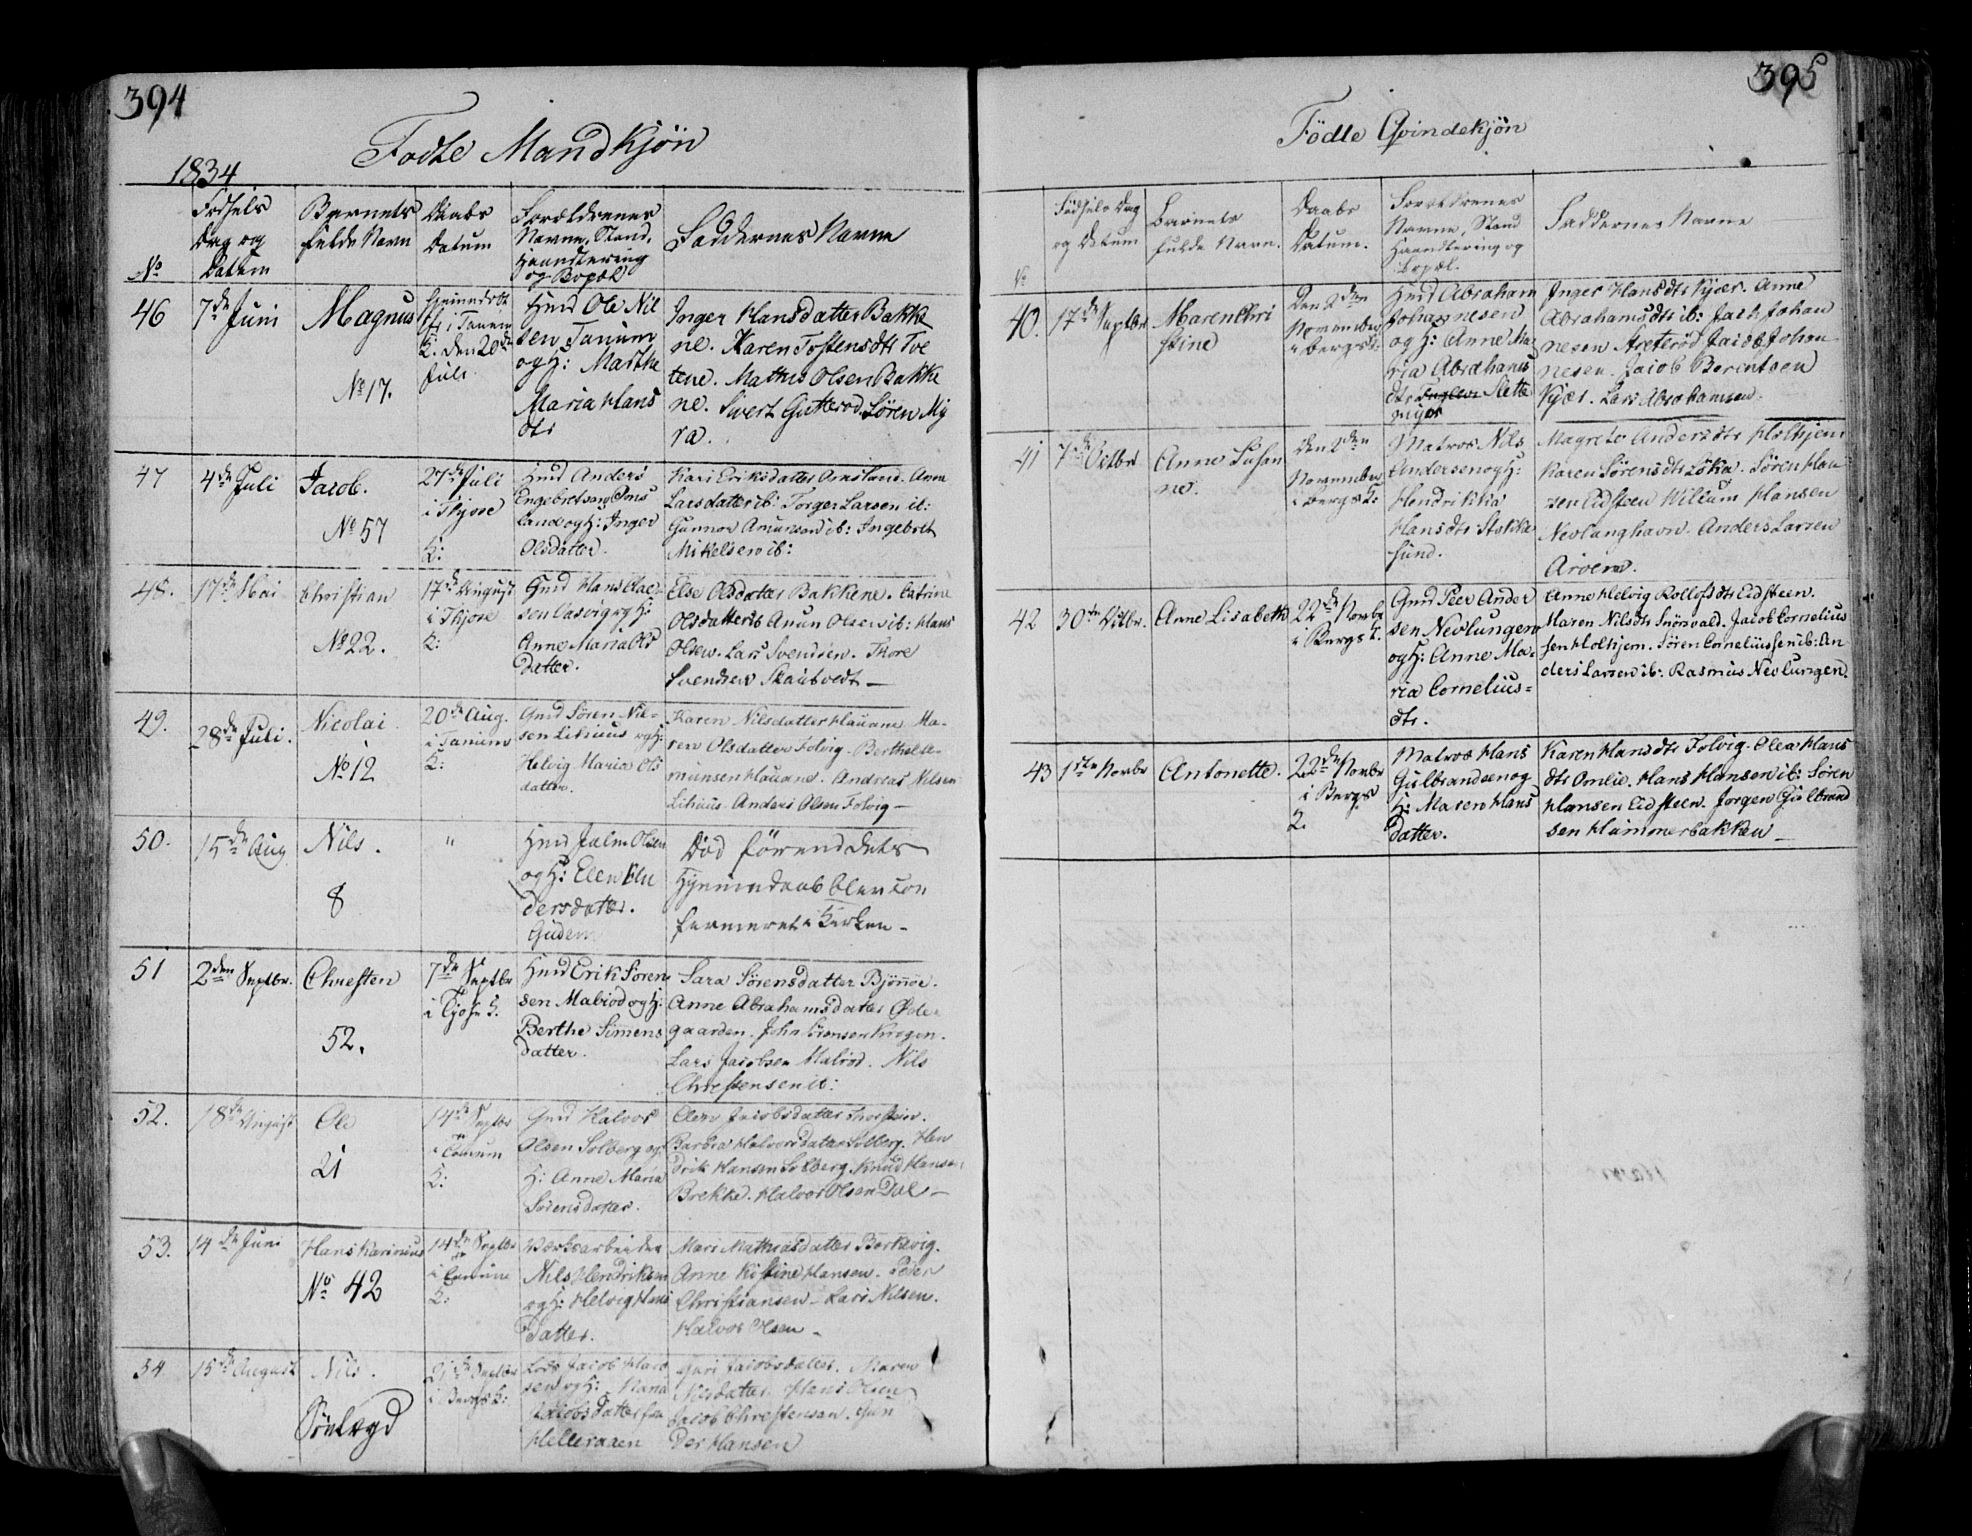 394
1834
Fødte Mandkjøn
No
Fødsels
Dag og
Datum
Barnets
fulde Navn
Daabs
Datum
Forældrenes
Navne, Stand,
Haandtering
og Bopæl
Faddernes Navne
46
7de Juni
Magnus
No 17.
i Tanum
K. den 20de
Juli
Huusmd Ole Nil
sen Tanum
og H: Marthe
Maria Hans
dtr
Inger Hansdatter Bakke
ne. Karen Tostensdtr Tve
tene. Mathis Olsen Bakke
ne. Sivert Gutterød. Søren My
ra.
47
4de Juli
Jacob.
No 57
27de Juli
i Hjose
K:
Huusmd Anders
Engebretsen Ons
land og H: Inger
Olsdatter.
Kari Eriksdatter Arnsland. Anne
Larsdatter ib: Torger Larsen ib:
Gunnor Amunsen ib: Ingebret
Mikelsen ib:
48.
17de Mai
Christian
No 22.
17de August
i Hjose
K:
Gmd Hans Clae-
sen Aasvig og H:
Anne Maria Ols
datter.
Else Olsdatter Bakkene. Catrine
Olsdatter ib Anun Olsen ib: Hans
Olsen. Lars Svendsen. Thore
Svendsen Skaubvedt —
49.
28de Juli.
Nicolai
No 12
20de Aug.
i Tanum
K:
Gmd Søren Nil-
sen Lihuus og H:
Helvig Maria Ols
datter.
Karen Nilsdatter Hauane Ma-
ren Olsdatter Folvig. Berthe
munsen Hauane. Andreas Nilsen
Lihuus. Anders Olsen Folvig —
50.
15de Aug
Nils.
8
"
Huusmd Jalm Olsen
og H: Elen An
dersdatter.
Gudem
Død førend dets
Hjemmedaab blev con
fermeret i Kirken —
51
2den Septbr.
Christen
52.
7de Septbr
i Hjose K.
Huusmd Erik Søren
sen Malerød og H:
Berthe Simens
datter.
Sara Sørensdatter Bjønnæ.
Anne Abrahamsdatter Øde-
gaarden. John Sørensen Krogen.
Lars Jacobsen Malerød. Nils
Christensen ib:
52.
18de August
Ole
21
14de Septbr
i Tanum
K:
Gmd Halvor
Olsen Solberg og
H: Anne Maria
Sørensdatter.
Elen Jacobsdatter
Barbra Halvorsdatter Solberg. Hen
drik Hansen Solberg. Knud Hansen
Brekke. Halvor Olsen Dal —
53.
14de Juni
Hans Karinius
No 42
14de Septbr
i Tanum
K:
Værksarbeider
Nils Hendriksen
og H: Helvig Hans
datter.
Mari Mathiasdatter Barkevig.
Anne Kistine Hansen. Peder
Christiansen — Lars Nilsen.
Halvor Olsen —
54
15de August
Nils.
Sønlægd
21de Septbr
i Bergs K:
Lods Jacob Hans
sen og H: Maria
Jacobsdatter fra
Helleraaen
Guri Jacobsdatter. Maren
Nilsdatter Hans Olsen
Jacob Christensen. Gun
der Hansen
395
Fødte Qvindekjøn
No
Fødsels Dag
og Datum
Barnets
fulde Navn.
Daabs
Datum.
Forældrenes
Navne, Stand
Haandtering og
Bopæl.
Faddernes Navne
40.
17de Septbr
Maren Chri
stine
Den 2den
November
i Bergs K:
Huusmd Abraham
Johannesen
og H: Anne Ma-
ria Abrahams
dtr Slette
myer
Inger Hansdtr Kjær. Anne
Abrahamsdtr ib: Johan
nesen Jacob Johan
nesen. Jacob Berentsen
Kjær. Lars Abrahamsen.
41
7de Octbr
Anne Susan
ne.
Den 2den
November
i Bergs K:
Matros Nils
Andersen og H:
Hendrikka
Hansdtr Stokke
sund.
Magrete Andersdtr Holhjem
Karen Sørensdtr Løka. Søren Han
sen Eidsteen Willum Hansen
Nevlunghavn. Anders Larsen
Aroen.
42
30te Octbr.
Anne Lisabeth
22de Novbr
i Bergs K.
Gmd Peer Ander
sen Nevlungen
og H: Anne Ma-
ria Cornelius-
dtr.
Anne Helvig Rollofsdtr Eidsteen.
Maren Nilsdtr Snørvald. Jacob Cornelius
sen Holhjem. Søren Corneliussen ib: An
ders Larsen ib: Rasmus Nevlungen.
43
1ste Novbr
Antonette.
22de Novbr
i Bergs
K.
Matros Hans
Gulbrandsen og
H: Maren Hans
datter.
Karen Hansdtr Folvig. Olea Hans
dtr Omlie. Hans Hansen ib: Søren
Hansen Eidsteen. Jorgen Gulbrand
sen Hammerbakken —